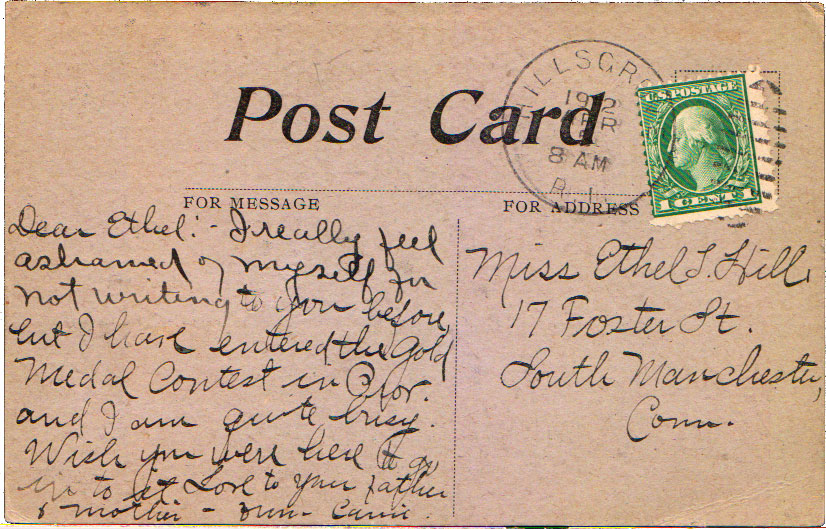 Post Card
HILLSGRO
1912
APR
8 AM
R.I.
U.S. POSTAGE
1 CENT 1
FOR MESSAGE
FOR ADDRESS
Dear Ethel:- I really feel
ashamed of myself for
not writing to you before,
but I have entered the Gold
Medal Contest in Prov.
and I am quite busy.
Wish you were here to go
in to it Love to your father
& mother - Carrie.
Miss Ethel L. Hill,
17 Foster St.
South Manchester,
Conn.